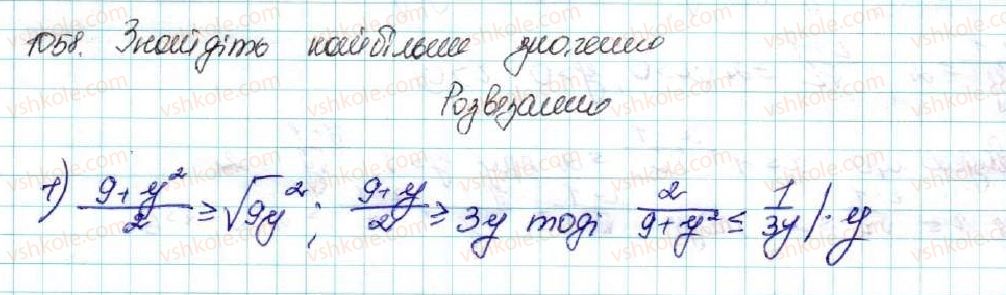 1058. Знайдіть найбільше значення
Розвезання
1) \frac{9+y^2}{2} ≥ \sqrt{9y^2}; \frac{9+y}{2} ≥ 3y тоді \frac{2}{9+y^2} ≤ \frac{1}{3y} / · y